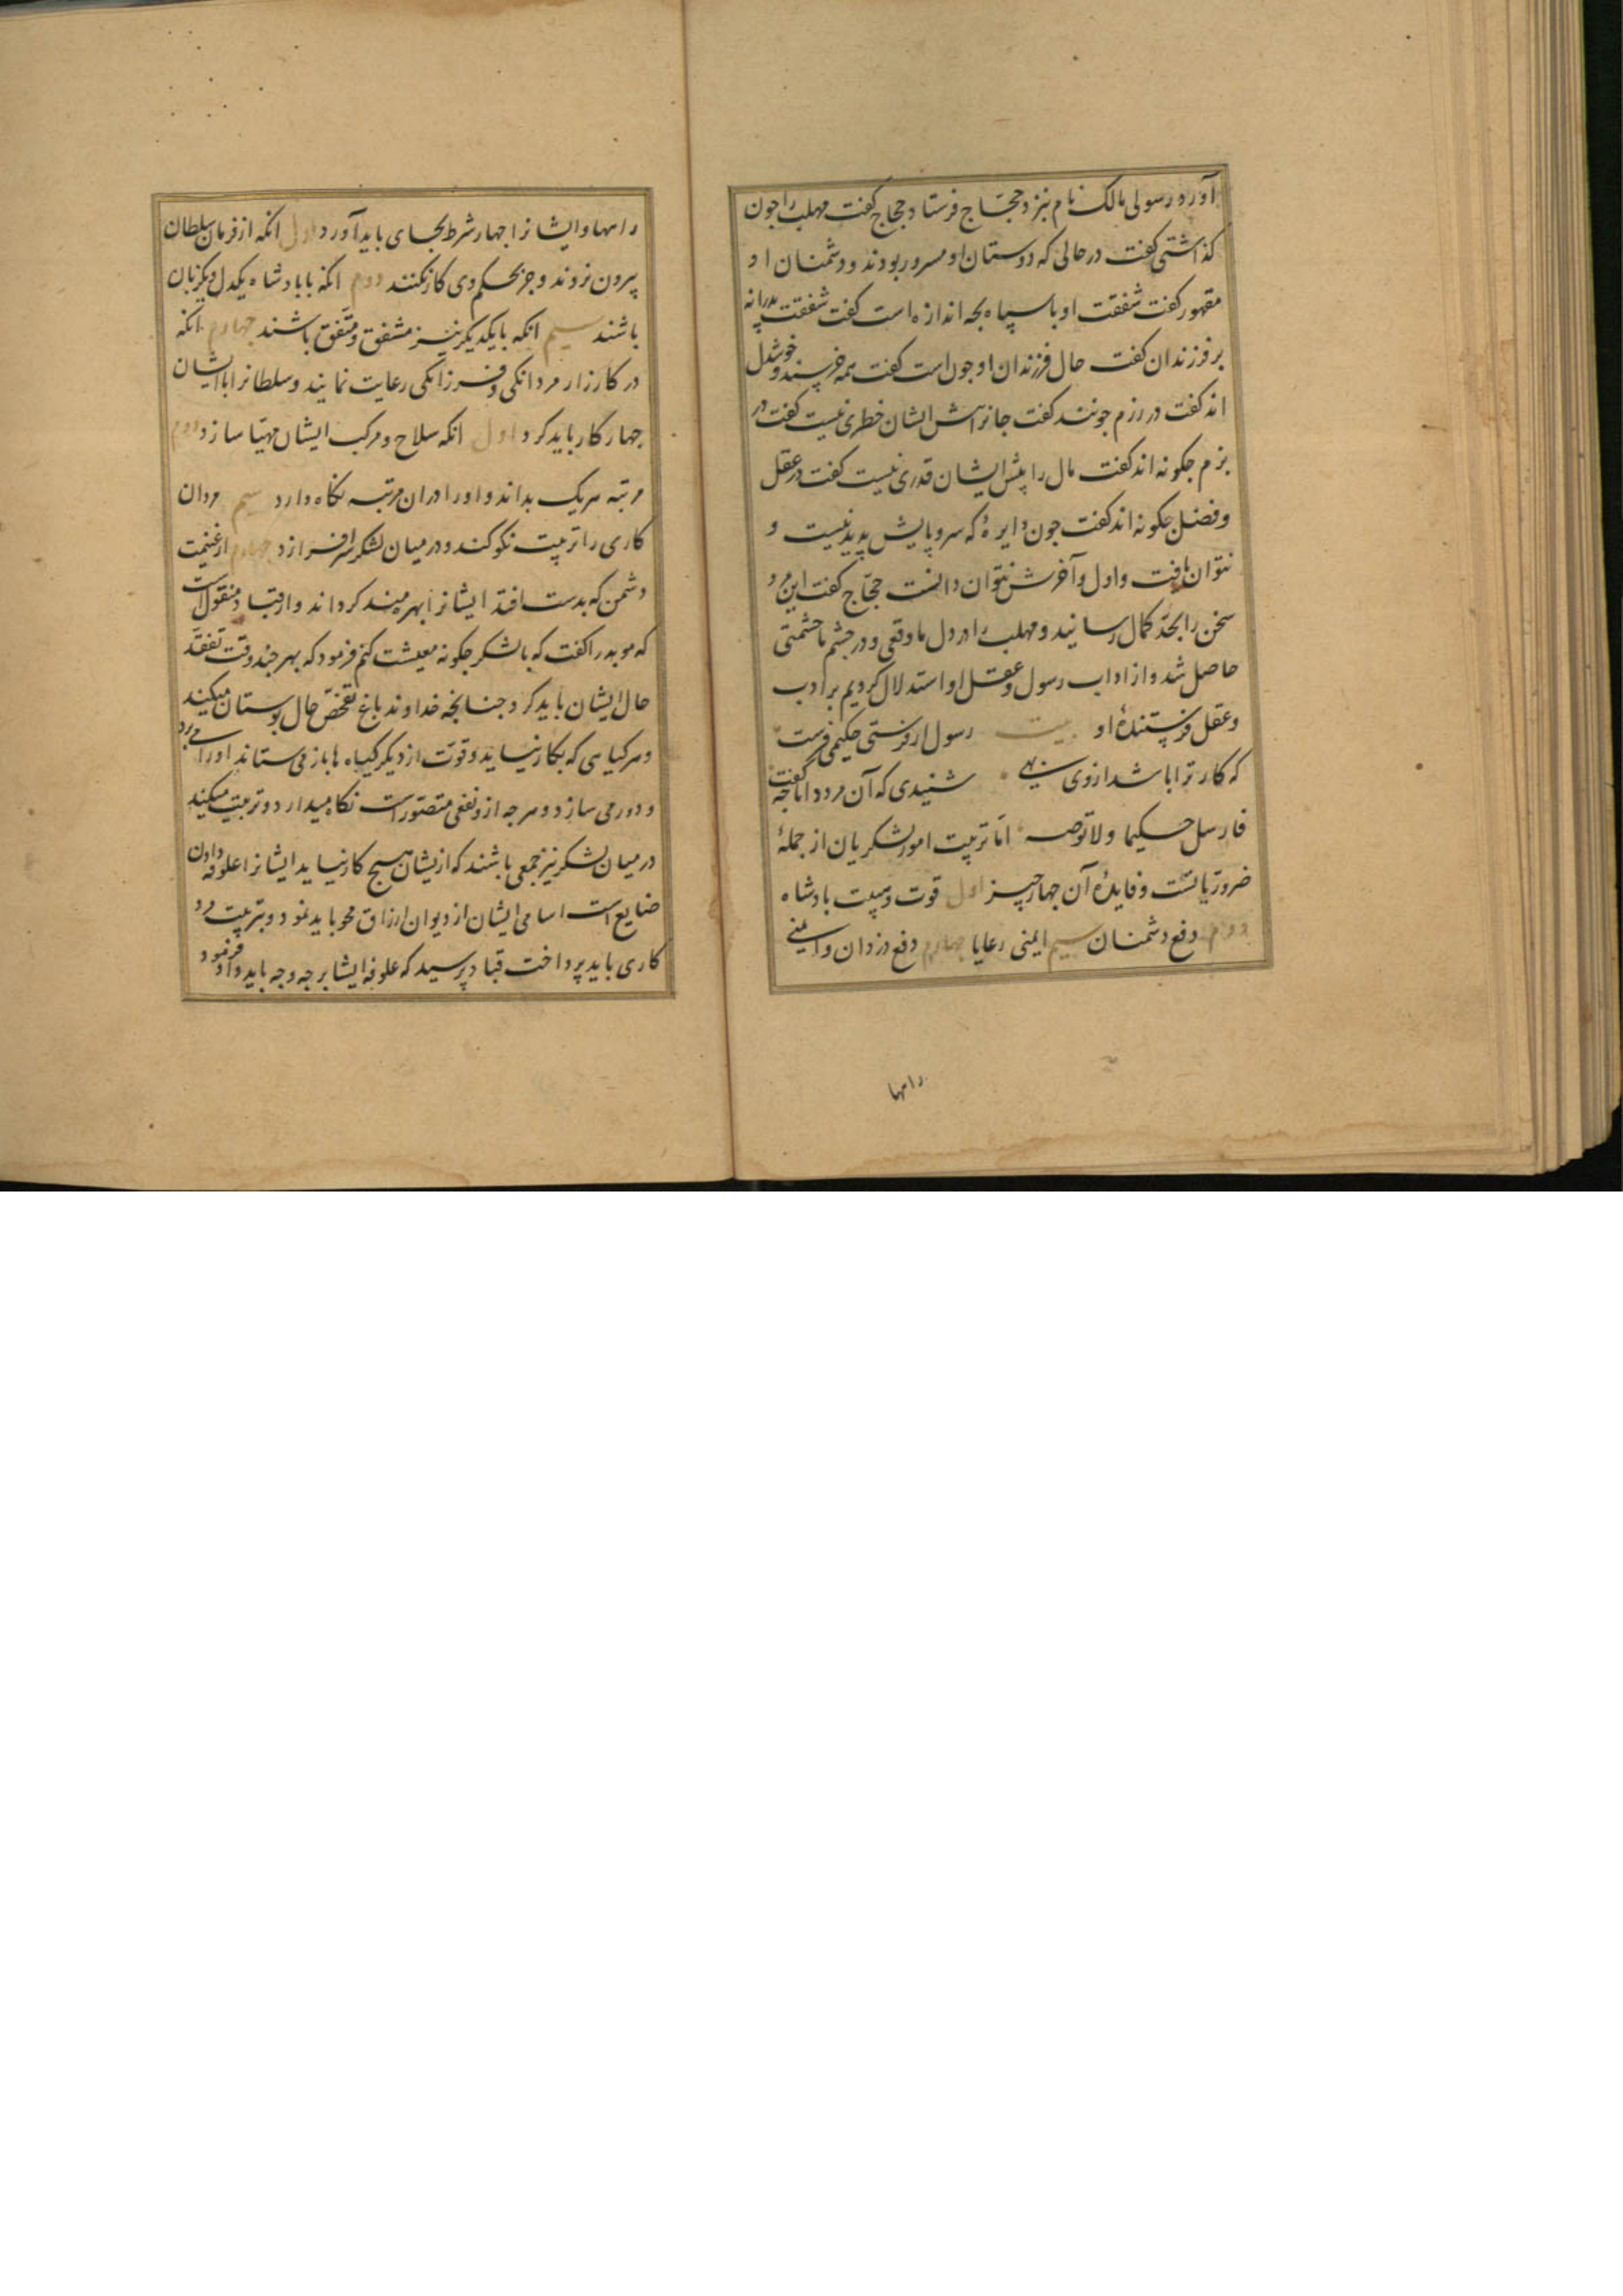 آورد رسولی مالک نام بنزد حجّاج فرستاد حجاج کفت مهلب را جون
کذاشتی کفت در حالی که دوستان او مسرور بودند و دشمنان او
مقهور کفت شفقت او با سپاه بجه اندازه است کفت شفقت پدرانه
بر فرزندان کفت حال فرزندان او جون است کفت همه خرسند و خوشدل
اند کفت در رزم جونند کفت جانرا پیش ایشان خطری نیست کفت در
بزم جکونه اند کفت مال را پیش ایشان قدری نیست کفت در عقل
و فضل جکونه اند کفت جون دایرهٔ که سر و پایش پدید نیست و
نتوان یافت و اول و آخرش نتوان دانست حجّاج کفت این مرد
سخن را بحدّ کمال رسانید و مهلب را در دل ما وقعی و در جشم ما حشمتی
حاصل شد و از اداب رسول و عقل او استدلال کردیم بر ادب
و عقل فرستندهٔ او بیت رسول ار فرستی حکیمی فرست
که کار ترا باشد از وی بهی شنیدی که آن مرد دانا جه کفت
فارسل حکیما ولا توصه امّا تربیت امور لشکریان از جملهٔ
ضروریاتست و فایدهٔ آن جهار جیز اول قوت و هیبت بادشاه
دوم دفع دشمنان سیم ایمنی رعایا جهارم دفع دزدان و ایمنی
راهها
راهها و ایشانرا جهار شرط بجای باید آورد اول انکه از فرمان سلطان
بیرون نروند و جز بحکم وی کار نکنند دوم انکه با بادشاه یکدل و یکزبان
باشند سیم انکه با یکدیکر نیز مشفق و متّفق باشند جهارم انکه
در کارزار مردانکی و فرزانکی رعایت نمایند و سلطانرا با ایشان
جهار کار باید کرد اول انکه سلاح و مرکب ایشان مهیّا سازد دوم
مرتبه هریک بداند و او را در ان مرتبه نکاه دارد سیم مردان
کاری را تربیت نکو کند و در میان لشکر سرافرازد جهارم از غنیمت
دشمن که بدست افتد ایشانرا بهره مند کرداند و از قباد منقول است
که موبد را کفت که با لشکر جکونه معیشت کنم فرمود که بهر جند وقت تفقّد
حال ایشان باید کرد جنانجه خداوند باغ تفحّص حال بوستان میکند
و هر کیاهی که بکار نیاید و قوّت از دیکر کیاه ها باز می ستاند او را می برد
و دور می سازد و هر جه از و نفعی متصّور است نکاه میدارد و تربیت میکند
در میان لشکر نیز جمعی باشند که ازیشان هیج کار نیاید ایشانرا علوفه دادن
ضایع است اسامی ایشان از دیوان ارزاق محو باید نمود و بتربیت مرد
کاری باید پرداخت قباد پرسید که علوفه ایشا بر جه وجه باید داد فرمود